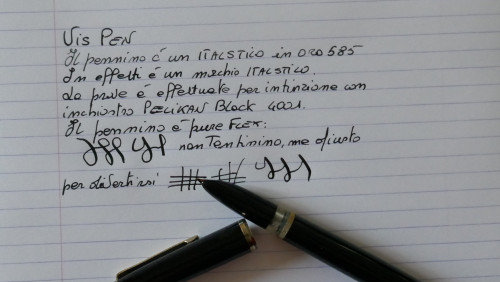 Vis Pen
Il pennino é un ITALSTICO in ORO 585
In effetti é un mechio ITALSTICO.
La prove é effettuate per intinzione con
inchiostro PELIKAN Black 4001.
Il pennino é pure FLEX:
non Tentinino, me giusto
per divertirsi